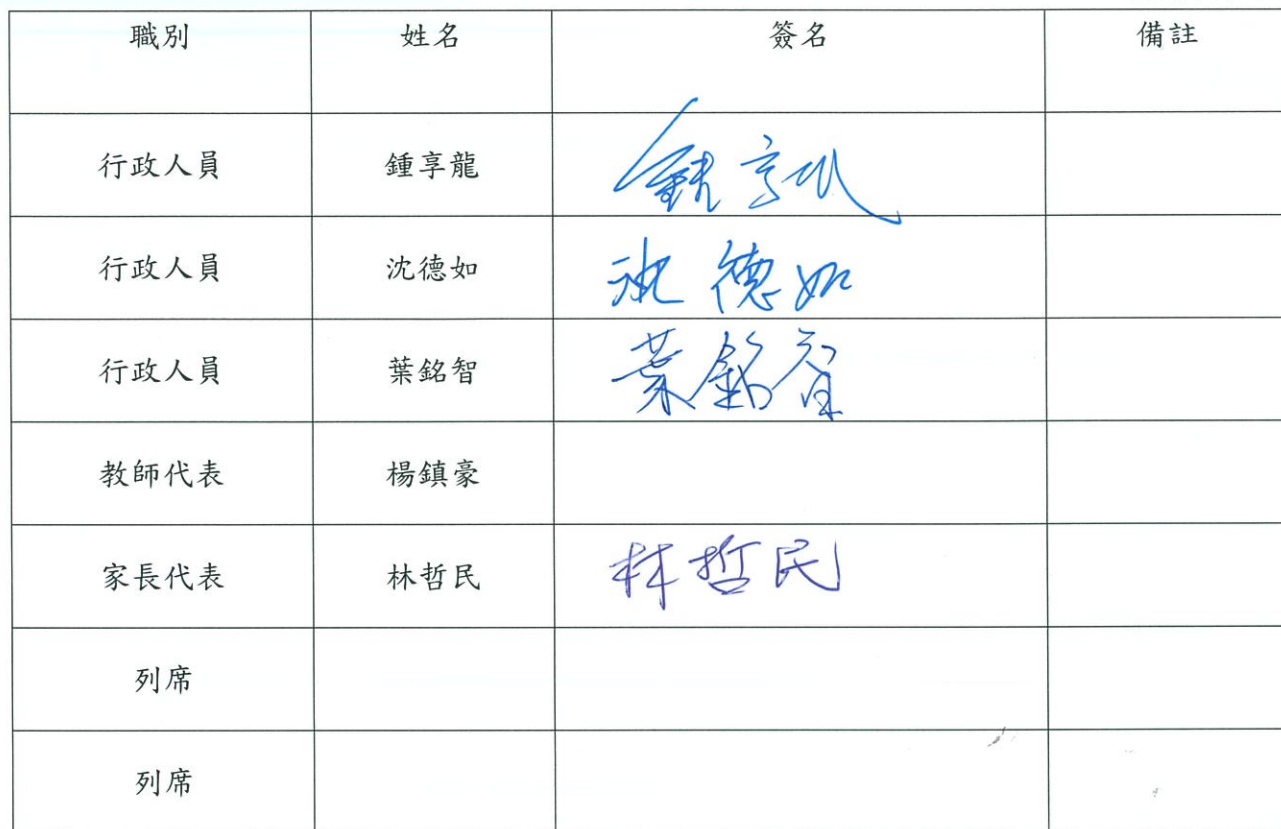 職別 姓名 簽名 備註
行政人員 鍾享龍 鍾享龍
行政人員 沈德如 沈德如
行政人員 葉銘智 葉銘智
教師代表 楊鎮豪
家長代表 林哲民 林哲民
列席
列席